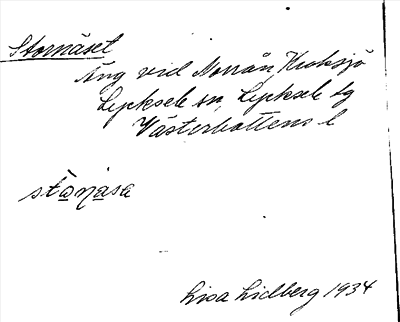 Stornäset
Äng vid Norrån, Kroksjö
Lycksele sn, Lycksele lg
Västerbottens l
stòṇàsa
Lisa Lidberg 1934